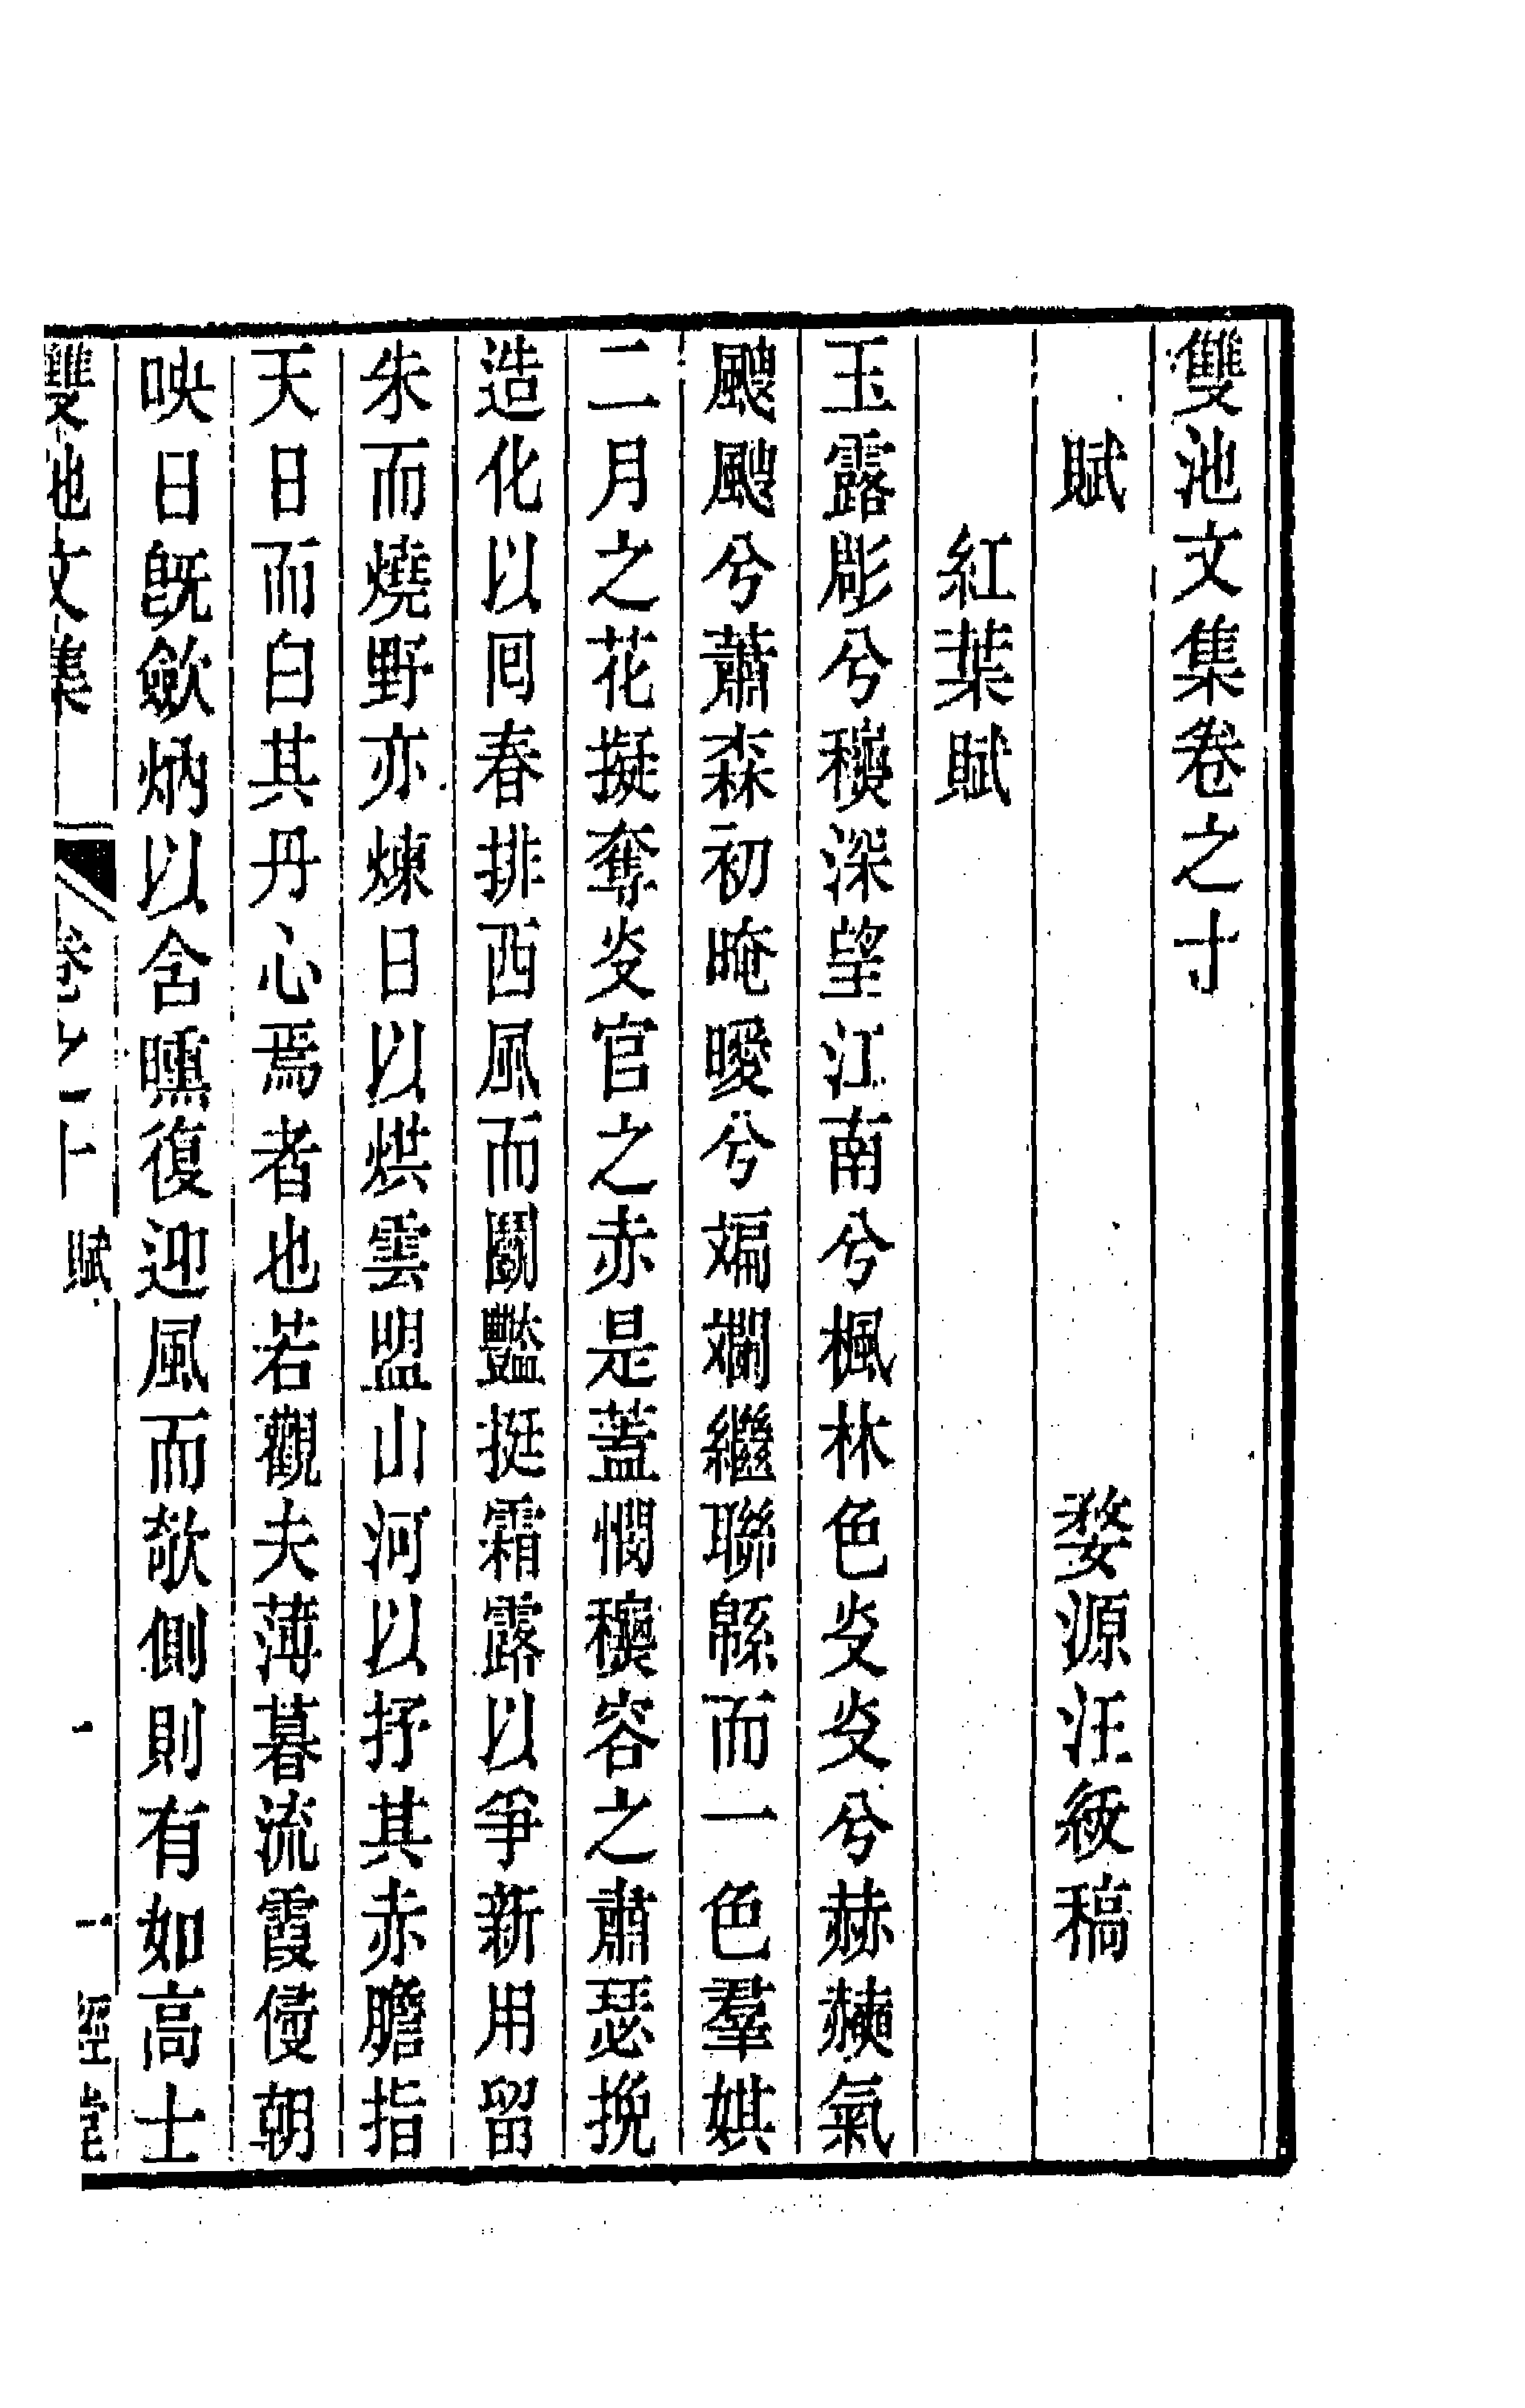 雙池文集卷之十
賦　　　　婺源汪紱稿
紅葉賦
玉露彫兮穐深望江南兮楓林色炎炎兮赫𧹍氣
颼颼兮蕭森初晻曖兮斒斕繼聯緜而一色羣娸
二月之花擬奪炎官之赤是蓋憫穐容之肅瑟挽
造化以囘春排西風而鬭豔挺霜露以爭新用留
朱而燒野亦煉日以烘雲盟山河以抒其赤膽指
天日而白其丹心焉者也若觀夫薄暮流霞侵朝
映日旣歛炳以含曛復迎風而欹側則有如高士
雙池文集　卷之十　賦　一　一經堂